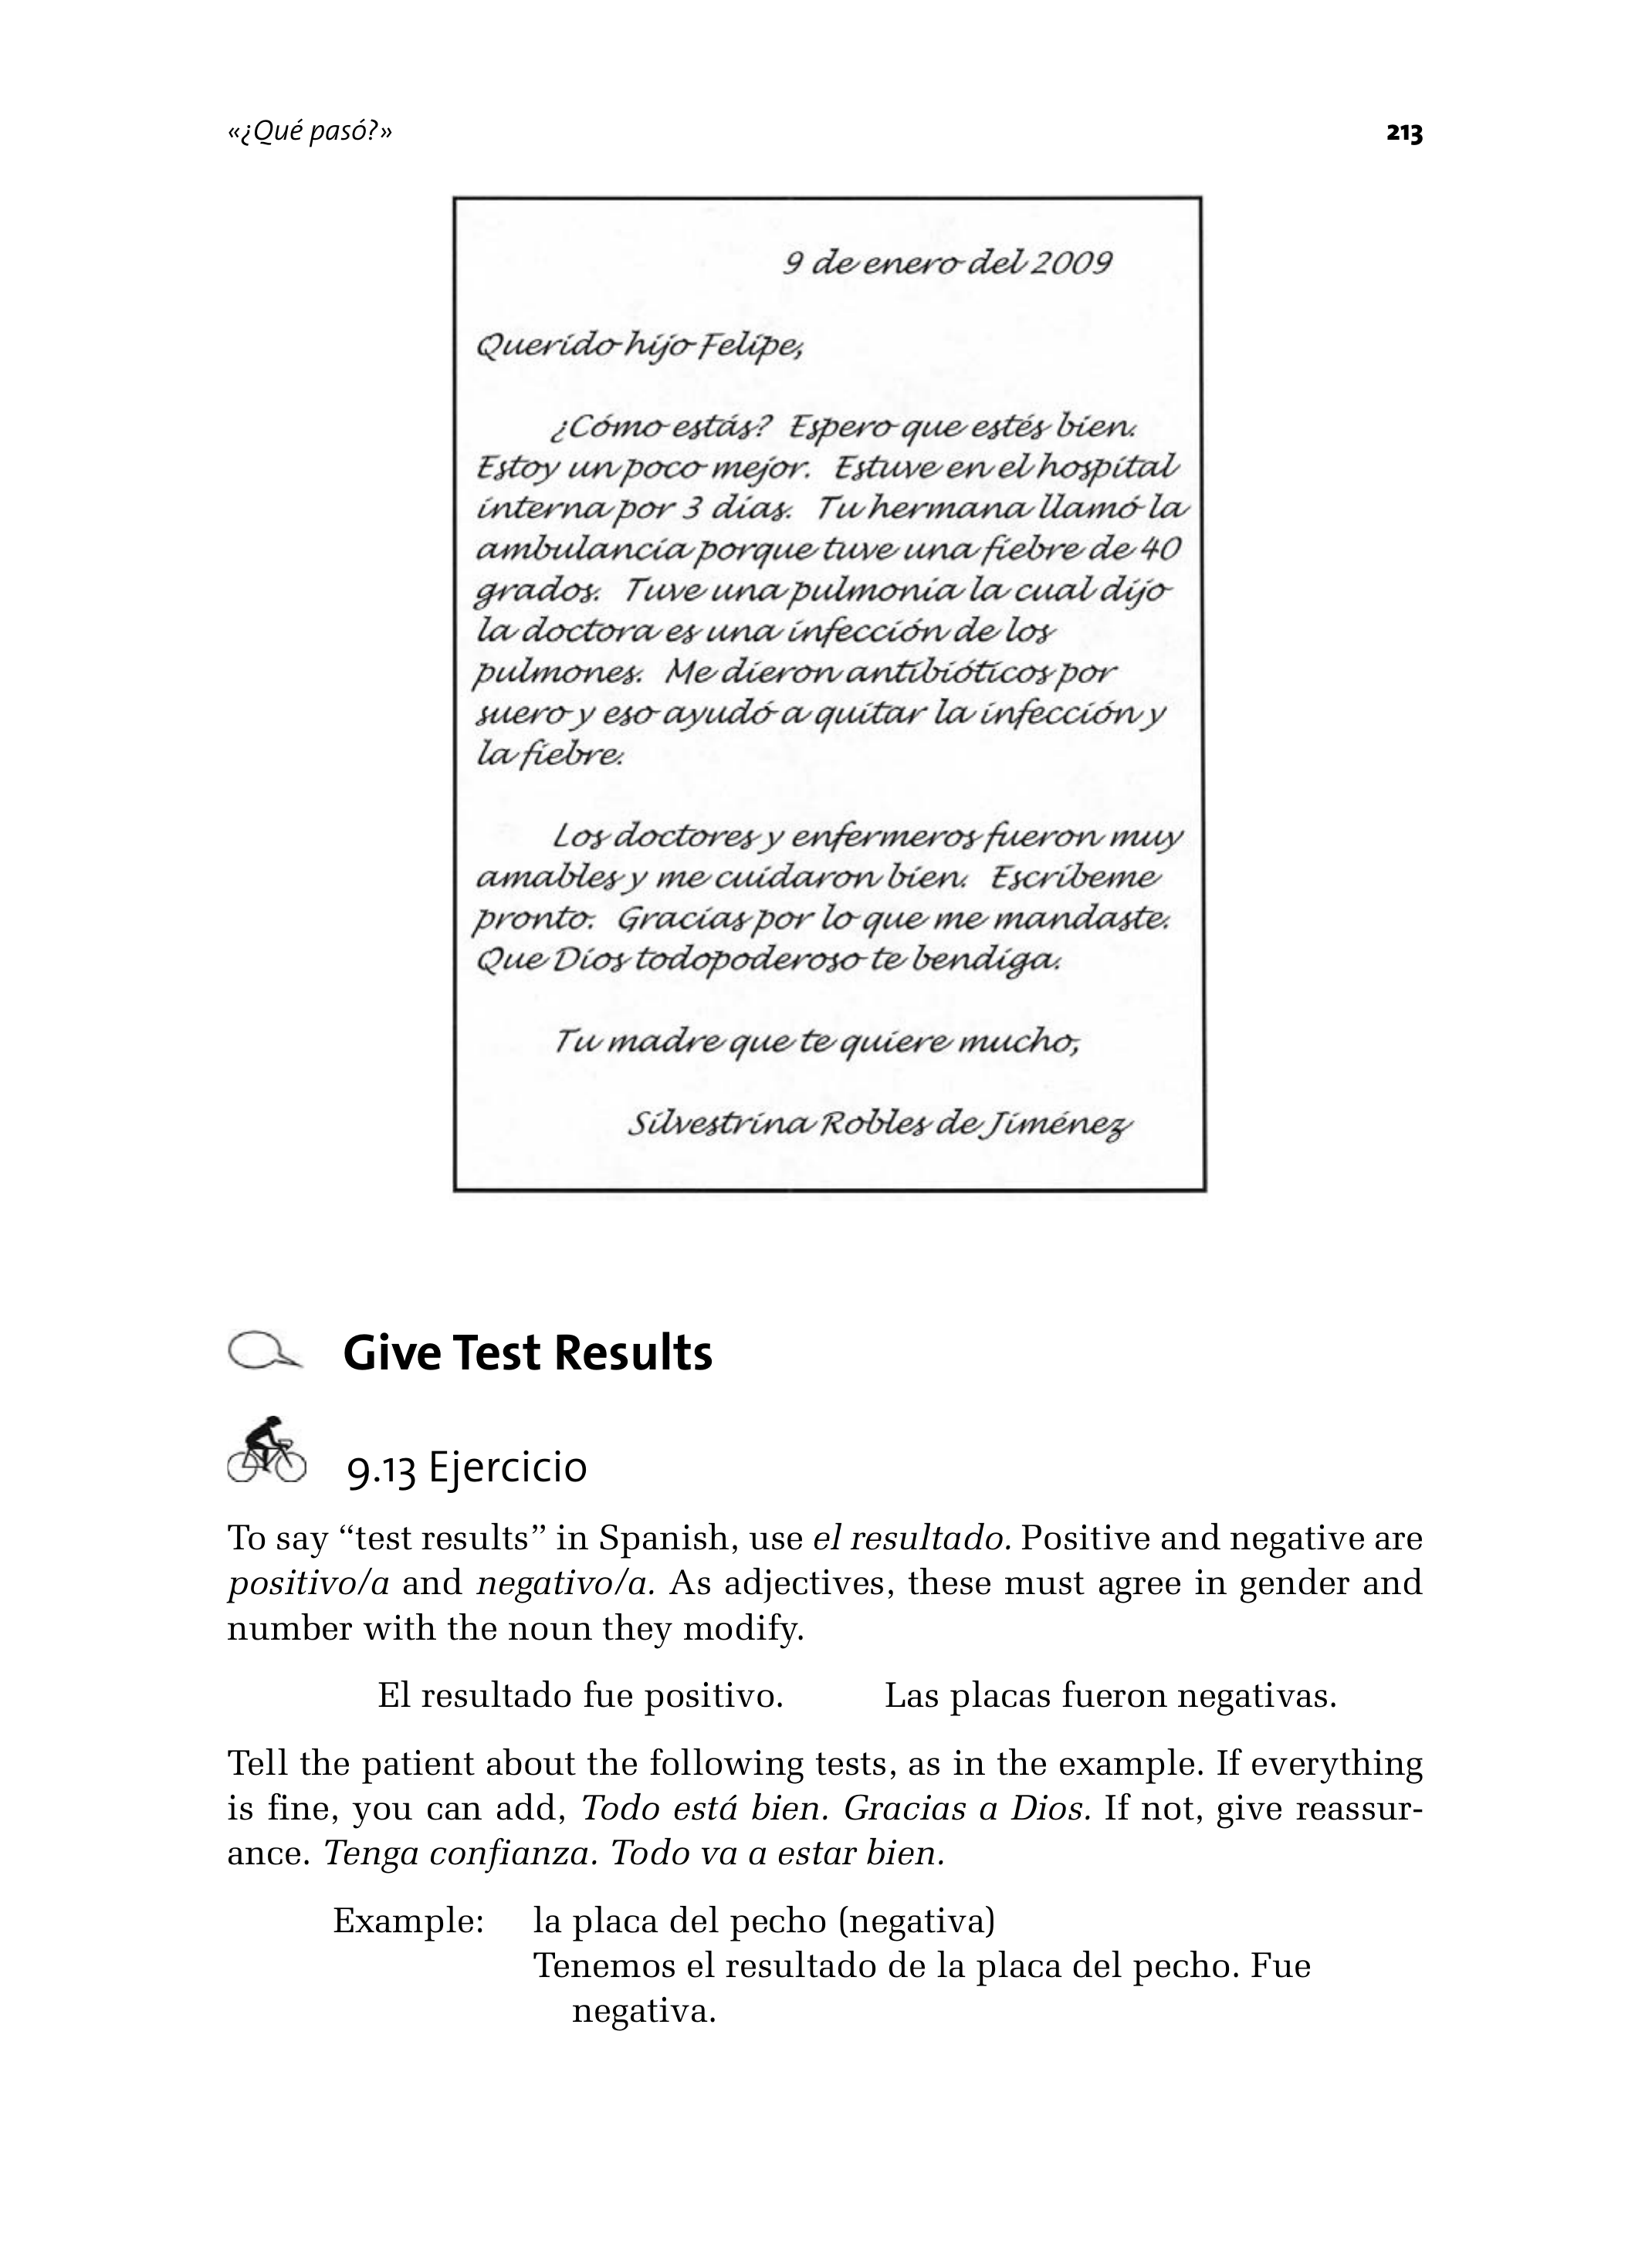 «¿Qué pasó?» 213
9 de enero del 2009
Querido hijo Felipe,
¿Cómo estás? Espero que estés bien.
Estoy un poco mejor. Estuve en el hospital
interna por 3 días. Tu hermana llamó la
ambulancia porque tuve una fiebre de 40
grados. Tuve una pulmonía la cual dijo
la doctora es una infección de los
pulmones. Me dieron antibióticos por
suero y eso ayudó a quitar la infección y
la fiebre.
Los doctores y enfermeros fueron muy
amables y me cuidaron bien. Escríbeme
pronto. Gracias por lo que me mandaste.
Que Dios todopoderoso te bendiga.
Tu madre que te quiere mucho,
Silvestrina Robles de Jiménez
Give Test Results
9.13 Ejercicio
To say “test results” in Spanish, use el resultado. Positive and negative are
positivo/a and negativo/a. As adjectives, these must agree in gender and
number with the noun they modify.
El resultado fue positivo. Las placas fueron negativas.
Tell the patient about the following tests, as in the example. If everything
is fine, you can add, Todo está bien. Gracias a Dios. If not, give reassur-
ance. Tenga confianza. Todo va a estar bien.
Example: la placa del pecho (negativa)
Tenemos el resultado de la placa del pecho. Fue
negativa.